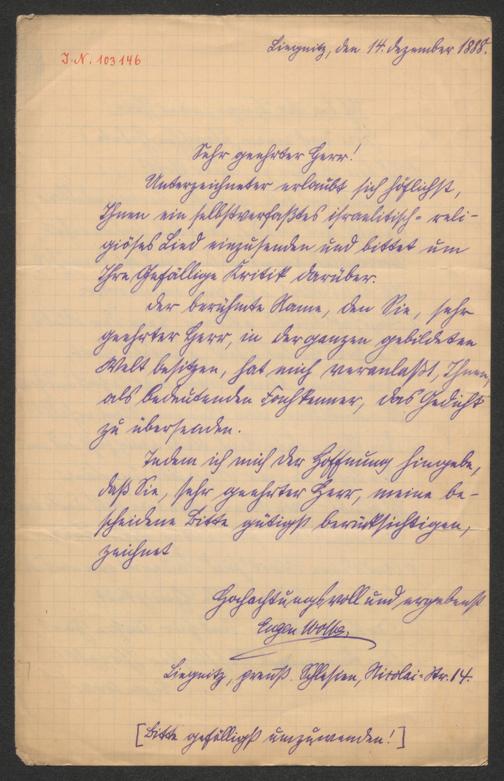 J. N. 103146
Liegnitz, den 14. Dezember 1888.
Sehr geehrter Herr!
Unterzeichneter erlaubt sich höflichst,
Ihnen ein selbstverfaßtes israelitisch-reli-
giöses Lied einzusenden und bittet um
Ihre gefällige Kritik darüber.
Der berühmte Name, den Sie, sehr
geehrter Herr, in der ganzen gebildeten
Welt besitzen, hat mich veranlaßt, Ihnen,
als bedeutenden Fachkenner, das Gedicht
zu übersenden.
Indem ich mich der Hoffnung hingebe,
daß Sie, sehr geehrter Herr, meine be-
scheidene Bitte gütigst berücksichtigen,
zeichnet
Hochachtungsvoll und ergebenst
Eugen
Liegnitz, preuß. Schlesien, Nicolai-Str. 14.
[Bitte gefälligst umzuwenden!]